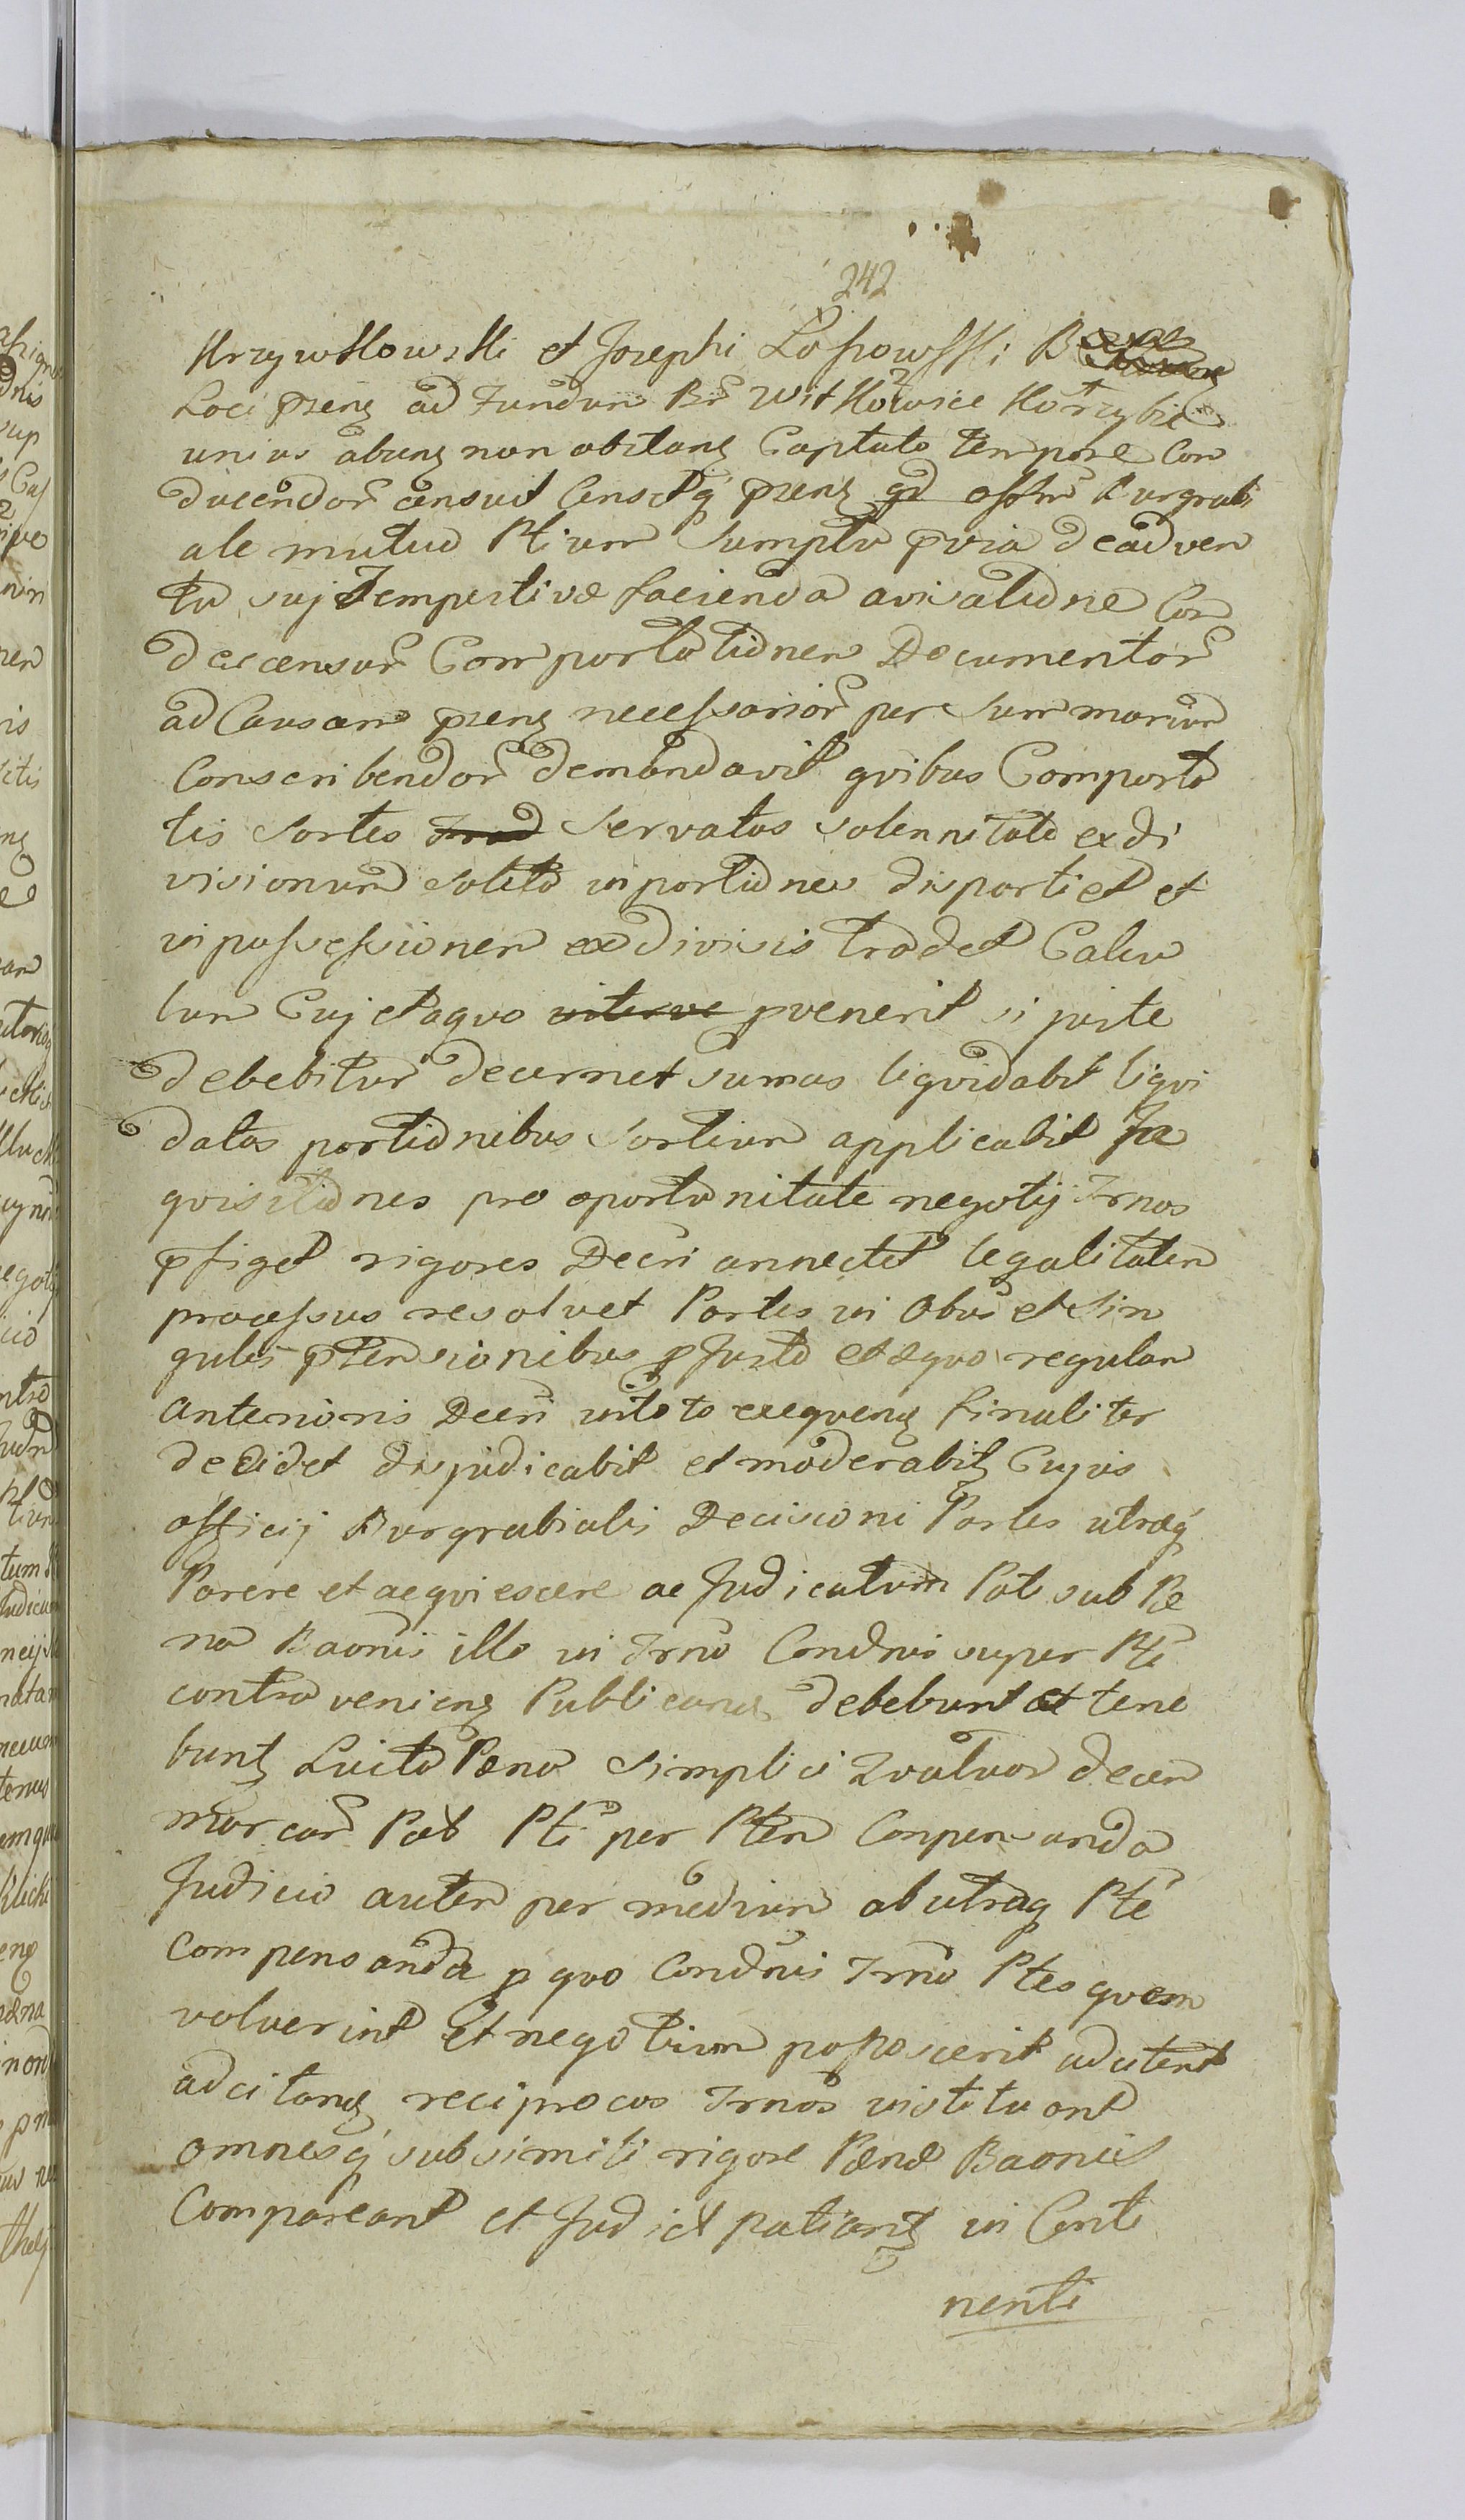 242
Krzywkowski et Josephi Łossowski B
Loci pręns ad Fundum Br Witkowice Korzybie
unius absens non obstans Captato tempore Con
ducendor censuit Censetq pręns qd offm Burgrabi
ale mutuo Ptium Sumptu pvia de adven
tu suj tempestive facienda avisatione Con
descensur Comportationem Documentor
ad Causam pręns necessarior per Summarium
Conscribendor demandavit qvibus Comporta
tis Sortes Trad Servatos solennitate exdi
visionum solita in portiones dispartiet et
in possessionem ex divisis tradet Calcu
lum Cuj et aqvo pvenerit si juste
debebitur decernet sumas liqvidabit liqvi
datas portionibus Sortium applicabit In
qvisitiones pro oportunitate negotij Trnos
pfiget rigores Decri annectet legalitatem
processus resolvet Partes in Obus et Sin
gulis ptensionibus p Justo et aeqvo regulam
anterioris Decri in toto exeqvens finaliter
decidet dijudicabit et moderabit Cujus
officij Burgrabialis Decisioni Partes utraeq
Parere et acqviescere ac Judicatum Pati sub Pę
na Baonis illo in Trno Condnis super Pte
contraveniens Publicand debebunt et tene
bunt Luito Pæna Simplici Qvatuor decem
marcar Pol Pti per Ptem Conpensanda
Judicio autem per medium ab utraq Pte
compensanda p qvo Condnis Trno Ptes qvem
voluerint et negotium poposcerit adcitent
adcitans reciprocos Trnos instituant
omnesq sub simili rigore Pænæ Baonis
Compareant et Judict patiant in Conti
nenti